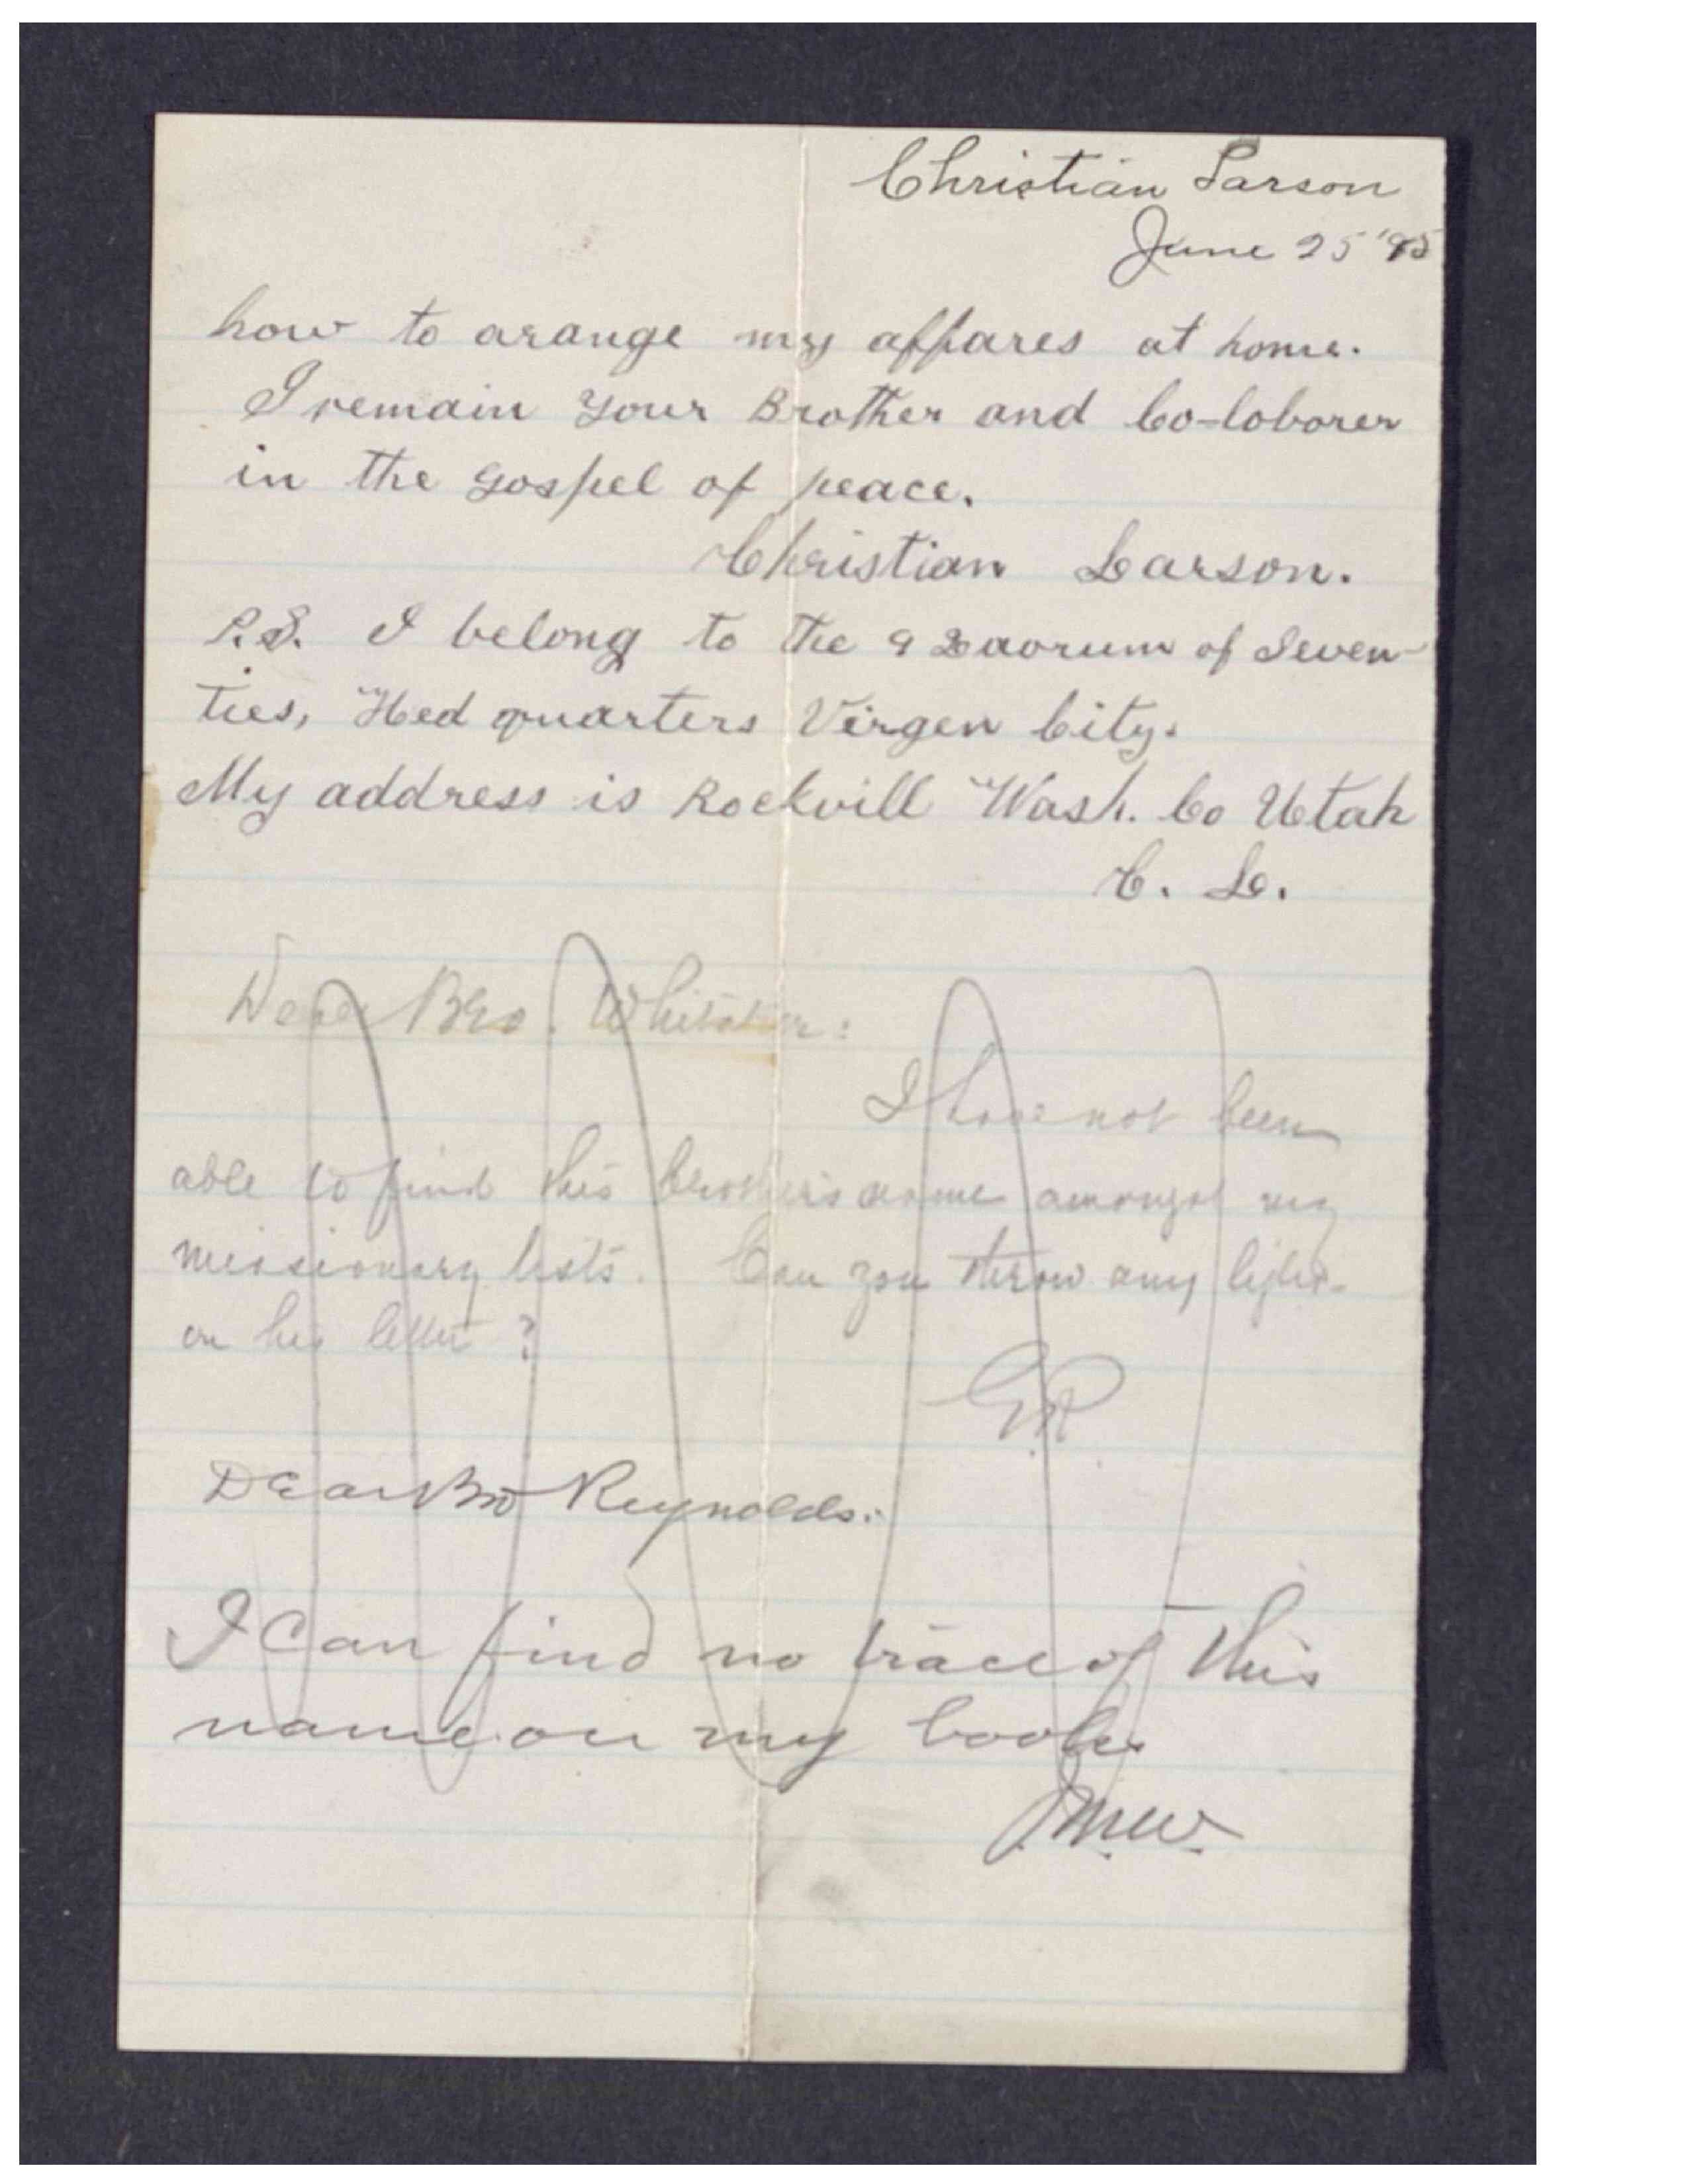 Christian Larson
June 25 '95
how to arange my affares at home.
I remain your Brother and Co-loborer
in the gospel of peace.
Christian Larson.
P.S. I belong to the 9 Quorum of Seven-
ties, Hed quarters Virgen City.
My address is Rockvill Wash. Co Utah
C. L.
Dear Bro. Whitaker:
I have not been
able to find this brother's name amongst my
missionary lists. Can you throw any light
on his letter?
G.R.
Dear Bro Reynolds:
I Can find no trace of this
name on my books
J.M.W.